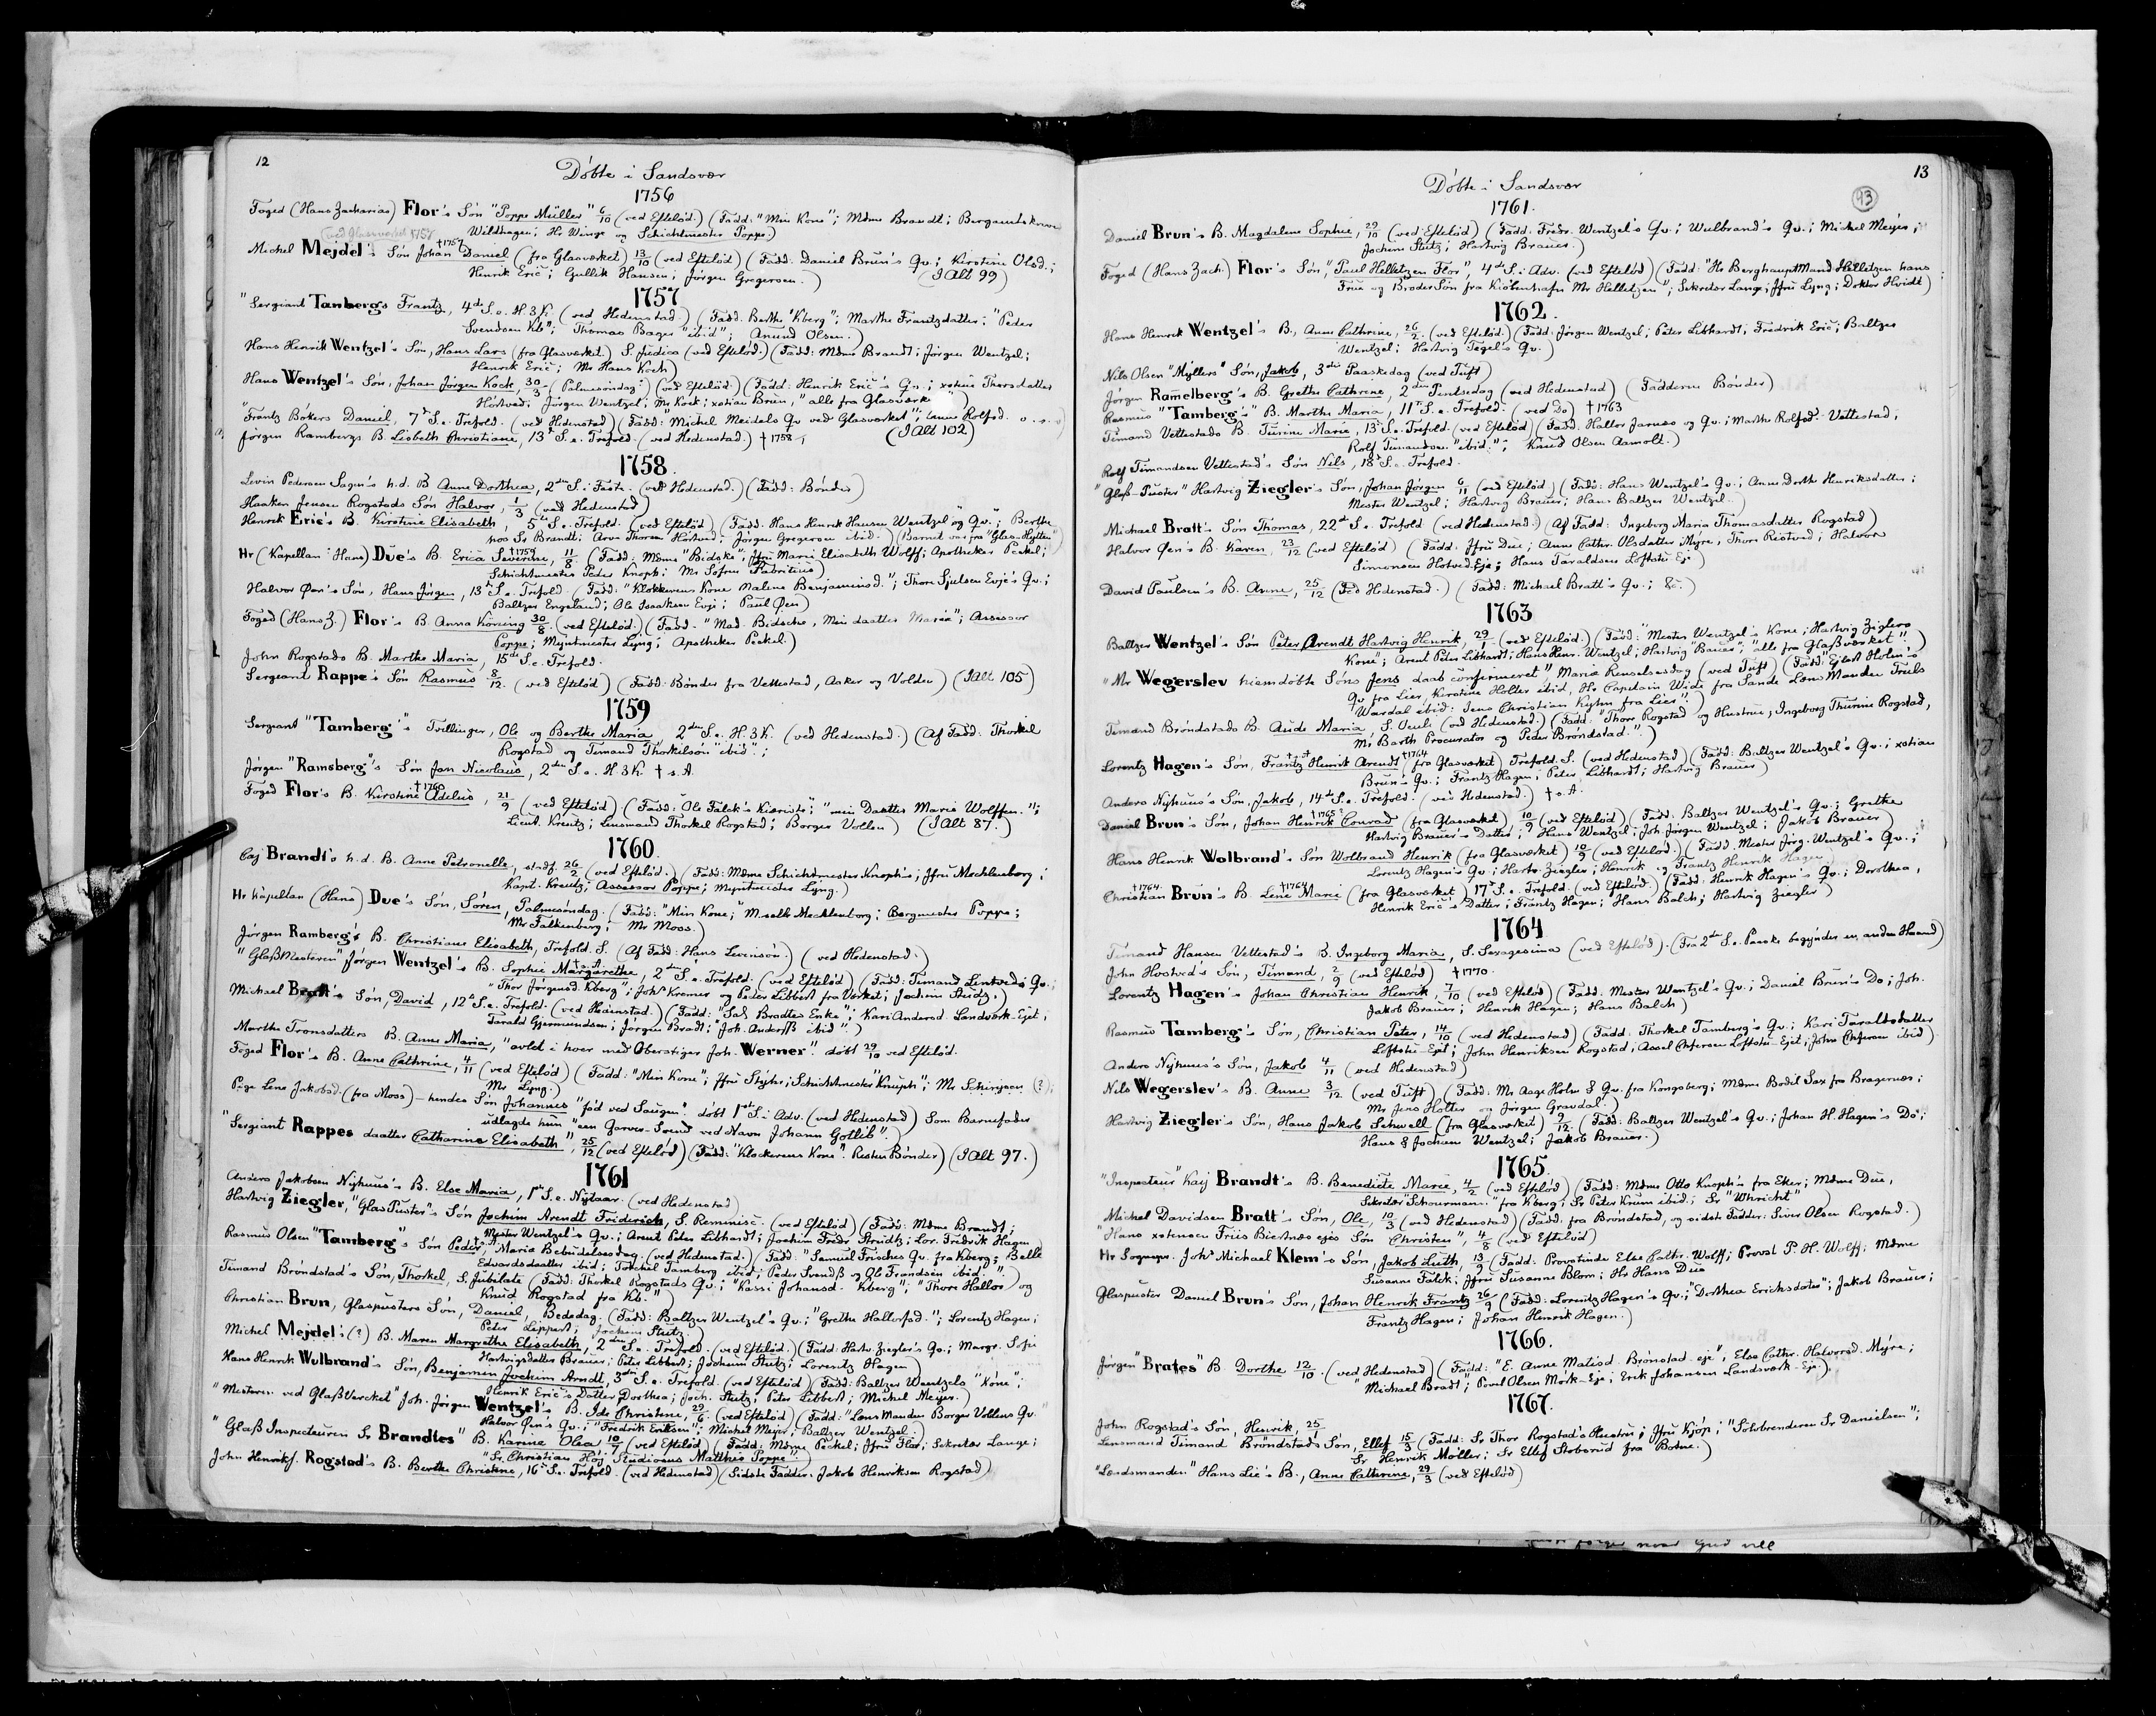 12
Døbte i Sandsvær
1756
Foged (Hans Zacharias) Flor's Søn "Poppe Müller" 6/10 (ved Efteløt) (Fadd: "Min Kone"; Mdme Brandt; Bergamtskriver
Wildhagen; Hr Winge og Schichtmester Poppe.)
(ved Glasværket 1758
Michel Mejdel's Søn Johan †1757 Daniel (fra Glasværket) 13/10 (ved Efteløt) (Fadd: Daniel Brun's Qv.; Kirstine Olsd.;
Henrik Eric; Gullik Hansen; Jørgen Gregersen.) (I Alt 99)
1757
"Sergiant Tambergs Frantz, 4de S. e. H. 3 K. (ved Hedenstad.) (Fadd: Berthe "Kberg"; Marthe Frantzdatter; "Peder
Svendsen Kb"; Thomas Bager "ibid"; Amund Olsen.)
Hans Henrik Wentzel's Søn, Hans Lars (fra Glasværket) S. Judica (ved Efteløt.) (Fadd: Mdme Brandt; Jørgen Wentzel;
Henrik Eric; Mr Hans Koch)
Hans Wentzel's Søn, Johan Jørgen Kock, 30/3 (Palmesøndag) (ved Efteløt) (Fadd: Henrik Eric's Qv.; xstine Thorsdatter
Hostved; Jørgen Wentzel; Mr Kock; xstian Brun, "alle fra Glasværke")
"Frantz Bøkers Daniel, 7de S. e. Trefold. (ved Hedenstad) (Fadd: "Michel Meidels Qv ved Glasværket"; Anne Rolfsd. o. s. v)
Jørgen Rambergs B. Lisbeth Christiane, 13de S. e. Trefold (ved Hedenstad.) † 1758 (I Alt 102)
1758.
Levin Pedersen Sagen's h. d. B Anne Dorthea, 2den S. i Faste. (ved Hedenstad.) (Fadd: Bønder)
Haaken Jensen Rogstads Søn Halvor, 1/3 (ved Hedenstad)
Henrik Eric's B. Kirstine Elisabeth, 5te S. e. Trefold (ved Efteløt) (Fadd: Hans Henrik Hansen Wentzel "og Qv."; Berthe
hos Sr Brandt; Arve Thoresen Hostved; Jørgen Gregersen ibid.) (Barnet var fra "Glas-Hytten")
Hr (Kapellan Hans) Due's B. Erica Severine, †1759 11/8 (Fadd: Mdme "Bidske"; Jfru Marie Elisabeth Wolff; Apotheker Peckel;
Schichtmester Peder Knoph; Mr Sofren Fabritius)
Halvor Øen's Søn, Hans Jørgen, 13de S. e. Trefold (Fadd: "Klokkerens Kone Malene Benjaminsd."; Thore Sjulsen Evje's Qv.;
Baltzer Engeland; Ole Isaaksen Evje; Paul Øen)
Foged (Hans Z.) Flor's B Anna Korning 30/8 (ved Efteløt) (Fadd: "Mad. Bidsche, Min daatter Maria"; Assessor
Poppe; Myntmester Lyng; Apotheker Peckel.)
John Rogstads B. Marthe Maria, 15de S. e. Trefold.
Sergeant Rappe's Søn Rasmus 8/12. (ved Efteløt) (Fadd: Bønder fra Vettestad, Aaker og Volden) (I Alt 105)
1759
Sergeant "Tamberg's" Tvillinger, Ole og Berthe Maria, 2den S. e. H. 3 K. (ved Hedenstad.) (Af Fadd: Thorkel
Rogstad og Timand Thorkilsøn "ibid".;
Jørgen "Ramsberg"'s Søn Jan Nicolaus, 2den S. e. H. 3 K. † s. A.
Foged Flor's B. Kirstine †1760 Adelus, 21/9 (ved Efteløt) (Fadd: Ole Falck's Kiæriste; "min Daatter Marie Wolffen.";
Lieut. Kreutz; Lensmand Thorkel Rogstad; Borger Vollen) (I Alt 87.)
1760.
Caj Brandt's h. d. B. Anne Petronelle, stadf. 26/2 (ved Efteløt) (Fadd: Mdme Schichtmester Knoph's; Jfru Mechlenborg;
Kapt. Kreutz; Assessor Poppe; Myntmester Lyng.)
Hr Kapellan (Hans) Due's Søn, Søren, Palmesøndag. (Fadd: "Min Kone;" Mselle Mecklenborg; Bergmester Poppe;
Mr Falkenberg; Mr Moss.)
Jørgen Ramberg's B. Christiane Elisabeth, Trefold. S. (Af Fadd: Hans Levinsøn.) (ved Hedenstad.)
"Glaßmesteren" Jørgen Wentzel's B. Sophie Margarethe, † s. A. 2den S. e. Trefold. (ved Efteløt) (Fadd: Timand Lintveds Qv.;
"Thor Jørgensd. Kberg"; Johs Kremer og Peder Libbert fra Værket; Jochim Stutz.)
Michael Bratt's Søn, David, 12te S. e. Trefold. (ved Hedenstad.) (Fadd: "Sal. Bradtes Enke"; Kari Andersd. Landværk-Ejet;
Tarald Gjermundsen; Jørgen Bradt; "Joh. Anderß ibid".)
Marthe Tronsdatters B. Anne Maria, "avlet i hoer med Oberstiger Joh. Werner". døbt 29/10 ved Efteløt.
Foged Flor's B. Anne Cathrine, 4/11 (ved Efteløt) (Fadd: "Min Kone"; Jfru Styhr; Schichtmester "Knuph"; Mr Schirysen (?);
Mr Lyng.)
Pige Lene Jakobsd. (fra Moss) – hendes Søn Johannes "fød ved Saugen". døbt 1ste S. i Adv. (ved Hedenstad) Som Barnefader
udlagde hun "een Garver-Svend ved Navn Johann Gotlib".)
"Sergiant Rappes daatter Catharine Elisabeth", 25/12 (ved Efteløt) (Fadd: "Klockerens Kone". Resten Bønder) (I Alt 97.)
1761
Anders Jakobsen Nyhuus's B. Else Maria, 1ste S. e. Nytaar. (ved Hedenstad)
Hartvig Ziegler, "Glas Puster"'s Søn Jochim Arendt Friderich, S. Reminisc. (ved Efteløt) (Fadd: Mdme Brandt;
Mester Wentzel's Qv.; Arent Peter Libhardt; Jochim Fredr. Strudtz; Lor. Fredrik Hagen)
Rasmus Olsen "Tamberg"'s Søn Peder, † s. A. Maria Bebudelsesdag. (ved Hedenstad.) (Fadd: "Samuel Frisches Qv. fra Kberg; Belle
Edvardsdaatter ibid; Torchel Tamberg ibid; Peder Svendß og Ole Frandsen ibid.")
Timand Brøndstad's Søn, Thorkel, S. Jubilate (Fadd: Thorkel Rogstads Qv.; "Karri Johansd. Kberg"; Thore Hallos) og
Knud Rogstad fra Kb.")
Christian Brun, Glaspusters Søn, Daniel, Bededag. (Fadd: Baltzer Wentzel's Qv.; "Grethe Hallersd."; Lorentz Hagen;
Peter Lippert; Jochim Stutz.)
Michel Mejdel: (?) B. Maren Margrethe Elisabeth, 2den S. e. Trefold. (ved Efteløt.) (Fadd: Hartv. Ziegler's Qv.; Margr. Sofie
Hartvigsdatter Brauer; Peter Libbert; Jochum Stutz; Lorentz Hagen)
Hans Henrik Wulbrand's Søn, Benjamin Jochim Arndt, 3die S. e. Trefold. (ved Efteløt) (Fadd: Baltzer Wentzels "Kone";
Henrik Eric's Datter Dorthea; Joch. Stutz; Peter Libbert; Michel Meyer.)
"Mesteren ved Glaß Værcket" Joh. Jørgen Wentzel's B. Ide Christine, 29/6 (ved Efteløt) (Fadd: "Læns Manden Borger Vollens Qv."
Halvor Øen's Qv.; "Fredrik Eriksen"; Michel Meyer; Baltzer Wentzel)
"Glaß Inspecteuren Sr Brandtes" B. Karine Olea 10/7 (ved Efteløt) (Fadd: Mdme Peckel; Jfru Flor; Sekretær Lange;
"Sr. Christian Høj; Studiosus Matthis Poppe.")
John Henriks. Rogstad's B. Berthe Christine, 16de S. e. Trefold. (ved Hedenstad) (Sidste Fadder: Jakob Henriksen Rogstad)
13
93
Døbte i Sandsvær
1761.
Daniel Brun's B. Magdalene Sophie, 29/10 (ved Efteløt) (Fadd: Fredr. Wentzel's Qv.; Wulbrand's Qv.; Michel Meyer;
Jochim Stutz; Hartvig Brauer.)
Foged (Hans Zach) Flor's Søn, "Paul Helletzen Flor", 4de S. i Adv. (ved Efteløt) (Fadd: "Hr BerghauptMand Helletzen hans
Frue og BroderSøn fra Kiöbenhafn Mr Helletzen"; Sekretær Lange; Jfru Lyng; Doktor Hvidt)
1762.
Hans Henrik Wentzel's B, Anne Cathrine, 26/2. (ved Efteløt.) (Fadd: Jørgen Wentzel; Peter Libhardt; Fredrik Eric; Baltzer
Wentzel; Hartvig Tegel's Qv.)
Nils Olsen "Myllers" Søn, Jakob, 3die Paaskedag (ved Tuft)
Jørgen Ramelberg's B. Grethe Cathrine, 2den Pintsedag (ved Hedenstad) (Fadderne Bønder)
Rasmus "Tamberg's" B. Marthe Maria, 11te S. e. Trefold. (ved Do) † 1763
Timand Vettestads B. Turine Marie, 13de S. e. Trefold. (ved Efteløt) (Fadd. Hallor Jarnæs og Qv.; Marthe Rolfsd. Vettestad,
Rolf Timandsen "ibid."; Knud Olsen Aamoldt.)
Rolf Timandsen Vettestad's Søn Nils, 18de S. e. Trefold.
"Glaß-Puster" Hartvig Ziegler's Søn, Johan Jørgen 6/11 (ved Efteløt) (Fadd: Hans Wentzel's Qv.; Anne Dorth. Henriksdatter;
Mester Wentzel; Hartvig Brauer; Hans Baltzer Wentzel.)
Michael Bratt's Søn Thomas, 22de S. e. Trefold (ved Hedenstad.) (Af Fadd: Ingeborg Maria Thomasdatter Rogstad)
Halvor Øen's B. Karen, 23/12 (ved Efteløt) (Fadd: Jfru Due; Anne Cathr. Olsdatter Myre, Thore Ristved; Halvor
Simonsen Hotved Eje; Hans Taraldsen Loftstu-Ej)
David Paulsen's B. Anne, 25/12 (Ved Hedenstad.) (Fadd: Michael Bratt's Qv.; &c.)
1763
Baltzer Wentzel's Søn Peter Arendt Hartvig Henrik, 29/1 (ved Efteløt.) (Fadd: "Mester Wentzel's Kone; Hartvig Ziglers
Kone"; Arent Peter Libhardt; Hans Henr. Wentzel; Hartvig "Bauer"; "alle fra Glaßværket".)
"Mr Wegerslev hiemdøbte Søns Jens daab confirmeret", Maria Renselsesdag (ved Tuft) (Fadd: "Ejlert Holm's
Qv. fra Lier, Kirstine Holter ibid, Hr Capitain Wide fra Sande Læns Manden Truels
Wardal ibid: Jens Christian Kyhn fra Lier".)
Timand Brøndstads B. Aude Maria, S. Oculi (ved Hedenstad.) (Fadd: "Thore Rogstad og Hustrue, Ingeborg Thurine Rogstad,
Mr Barth Procurator og Peder Brøndstad".)
Lorentz Hagen's Søn, Frantz Henrik Arendt †1764 (fra Glasværket) Trefold. S. (ved Hedenstad) (Fadd: Baltzer Wentzel's Qv.; xstian
Brun's Qv.; Frantz Hagen; Peter Libhardt; Hartvig Brauer)
Anders Nyhuus's Søn, Jakob, 14de S. e. Trefold. (ved Hedenstad.) † s. A.
Daniel Brun's Søn, Johan Henrik †1765? Conrad (fra Glasværket) 10/9 (ved Efteløt) (Fadd: Baltzer Wentzel's Qv.; Grethe
Hartvig Brauer's Datter; Hans Wentzel; Joh. Jørgen Wentzel; Jakob Brauer)
Hans Henrik Wolbrand's Søn Wolbrand Henrik (fra Glasværket) 10/9 (ved Efteløt.) (Fadd. Mester Jørg. Wentzel's Qv.;
Lorentz Hagen's Qv.; Hartv. Ziegler; Henrik og Frantz Henrik Hagen.)
Christian †1764. Brun's B. Lene †1764 Marie (fra Glasværket) 17de S. e. Trefold. (ved Efteløt.) (Fadd: Henrik Hagen's Qv.; Dorothea,
Henrik Eric's Datter; Frantz Hagen; Hans Balch; Hartvig Ziegler)
1764
Timand Hansen Vettestad's B. Ingeborg Maria, S. Sexagesima (ved Efteløt). (Fra 2den S. e. Paaske begynder en anden Haand)
John Hostved's Søn, Timand, 2/9 (ved Efteløt) † 1770.
Lorentz Hagen's Johan Christian Henrik, 7/10 (ved Efteløt) (Fadd: Mester Wentzel's Qv.; Daniel Brun's Do; Joh.
Jakob Brauer; Henrik Hagen; Hans Balch)
Rasmus Tamberg's Søn, Christian Peter, 14/10 (ved Hedenstad) (Fadd: Thorkel Tamberg's Qv.; Kari Taraldsdatter
Loftstu-Ejet; John Henriksen Rogstad; Assel Chfersen Loftstu-Ejet; John Chfersen ibid)
Anders Nyhuus's Søn, Jakob 4/11 (ved Hedenstad)
Nils Wegerslev's B. Anne 3/12 (ved Tuft) (Fadd: Mr Aage Holm & Qv. fra Kongsberg; Mdme Bodil Sax fra Bragernæs;
Mr Jens Holter og Jørgen Gravdal.)
Hartvig Ziegler's Søn, Hans Jakob Schwell (fra Glasværket) 9/12. (Fadd: Baltzer Wentzel's Qv.; Johan H. Hagen's Do;
Hans & Jochum Wentzel; Jakob Brauer.)
1765.
"Inspecteur" Kaj Brandt's B. Benedicte Marie, 4/2 (ved Efteløt) (Fadd: Mdme Otto Knoph's fra Eker; Mdme Due,
Sekretær "Schourman" fra Kberg; Sr Peter Krum ibid; Sr "Whricht")
Michel Davidsen Bratt's Søn, Ole, 10/3 (ved Hedenstad) (Fadd. fra Brøndstad, og sidste Fadder: Siver Olsen Rogstad.)
"Hans xstensen Friis Biertnæs ejes Søn Christen", 4/8 (ved Efteløt)
Hr Sognepr. Johs Michael Klem's Søn, Jakob Luth, 13/9 (Fadd: Provstinde Else Cathr. Wolff; Provst P. H. Wolff; Mdme
Susanne Falck; Jfru Susanne Blom; Hr Hans Due
Glaspuster Daniel Brun's Søn, Johan Henrik Frantz 26/9 (Fadd: Lorentz Hagen's Qv.; "Dorthea Ericksdatter"; Jakob Brauer;
Frantz Hagen; Johan Henrik Hagen.)
1766.
Jørgen "Brates" B Dorthe 12/10. (ved Hedenstad) (Fadd: "E. Anne Matisd. Brønstad-eje"; Else Cathr. Halvorsd. Myre;
"Michael Bradt"; Povel Olsen Mørk-Eje; Erik Johansen Landsværk-Eje).
1767.
John Rogstad's Søn, Henrik, 25/1
Lensmand Timand Brøndstad's Søn, Ellef 15/3 (Fadd: Sr Thor Rogstad's Hustru; Jfru Kjöp; "Sølvbrenderen Sr Danielsen";
Sr Henrik Møller; Sr Ellef Stoberud fra Botne.)
"Landsmanden" Hans Lie's B., Anne Cathrine, 29/3 (ved Efteløt)